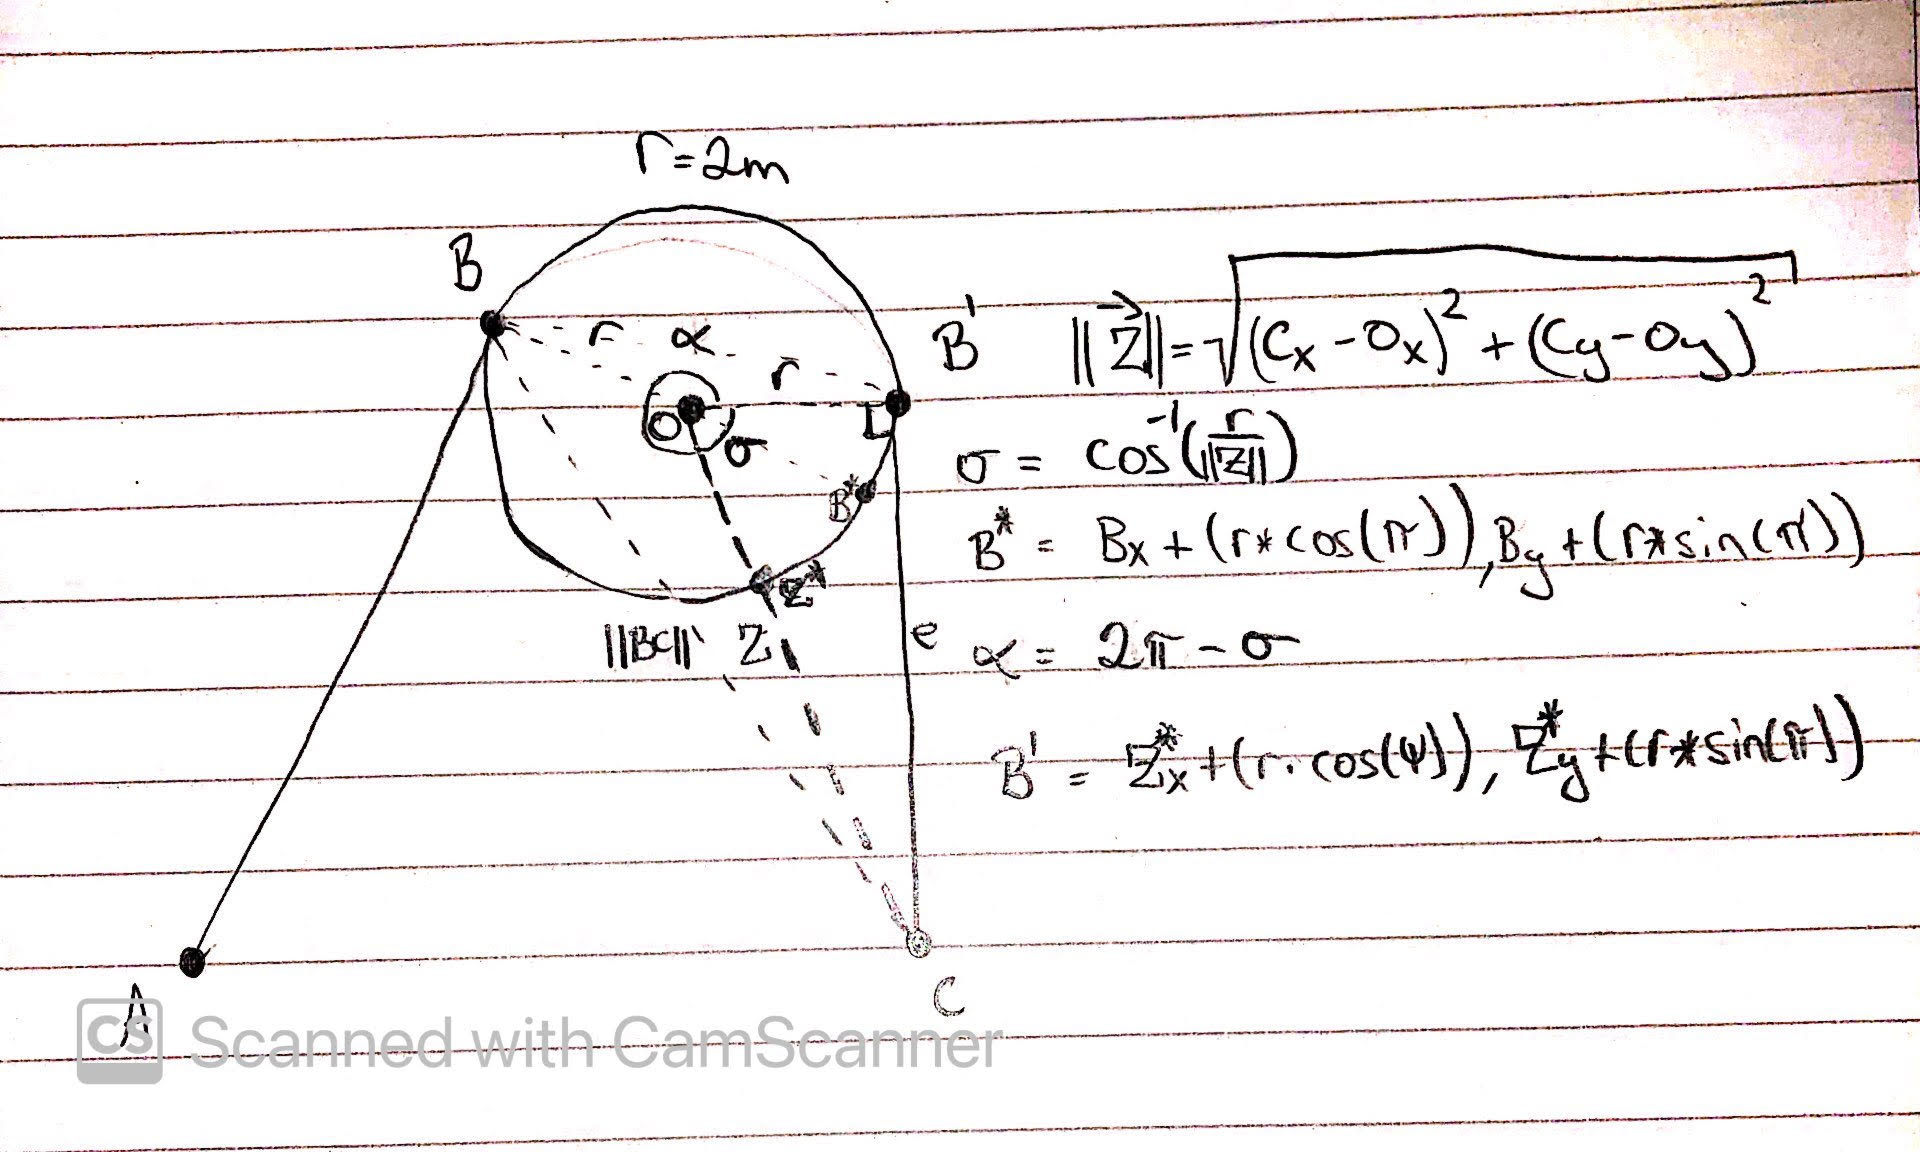 r=2m
B
r α r
B'
O σ
B*
Z*
||BC|| Z
e
A
C
||Z⃗||=√(Cx-Ox)²+(Cy-Oy)²
σ = cos⁻¹(r/||Z||)
B* = Bx+(r*cos(π)), By+(r*sin(π))
α = 2π-σ
B' = Z*x+(r.cos(ψ)), Z*y+(r*sin(π))
CS Scanned with CamScanner